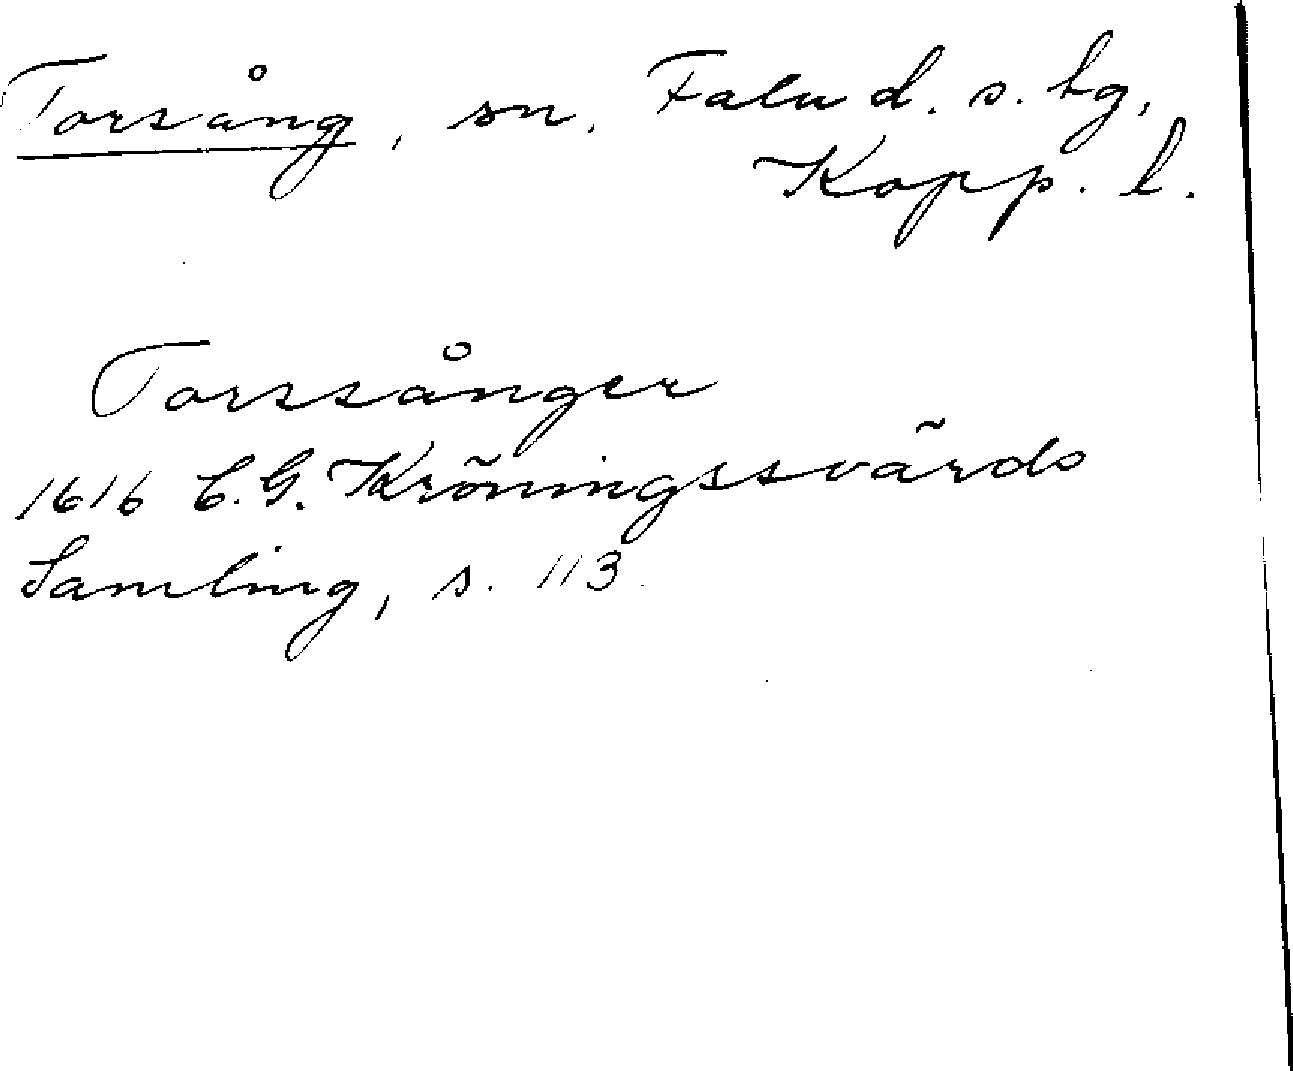 Torsång, sn, Falu d. s. tg,
Kopp. l.
Torssånger
1616 C.G. Kröningssvärds
Samling, s. 113